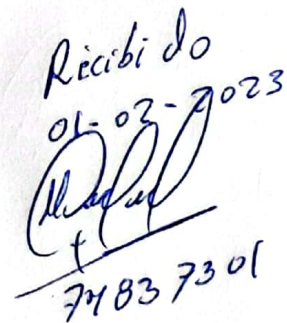 Recibido
01-02-2023
74837301